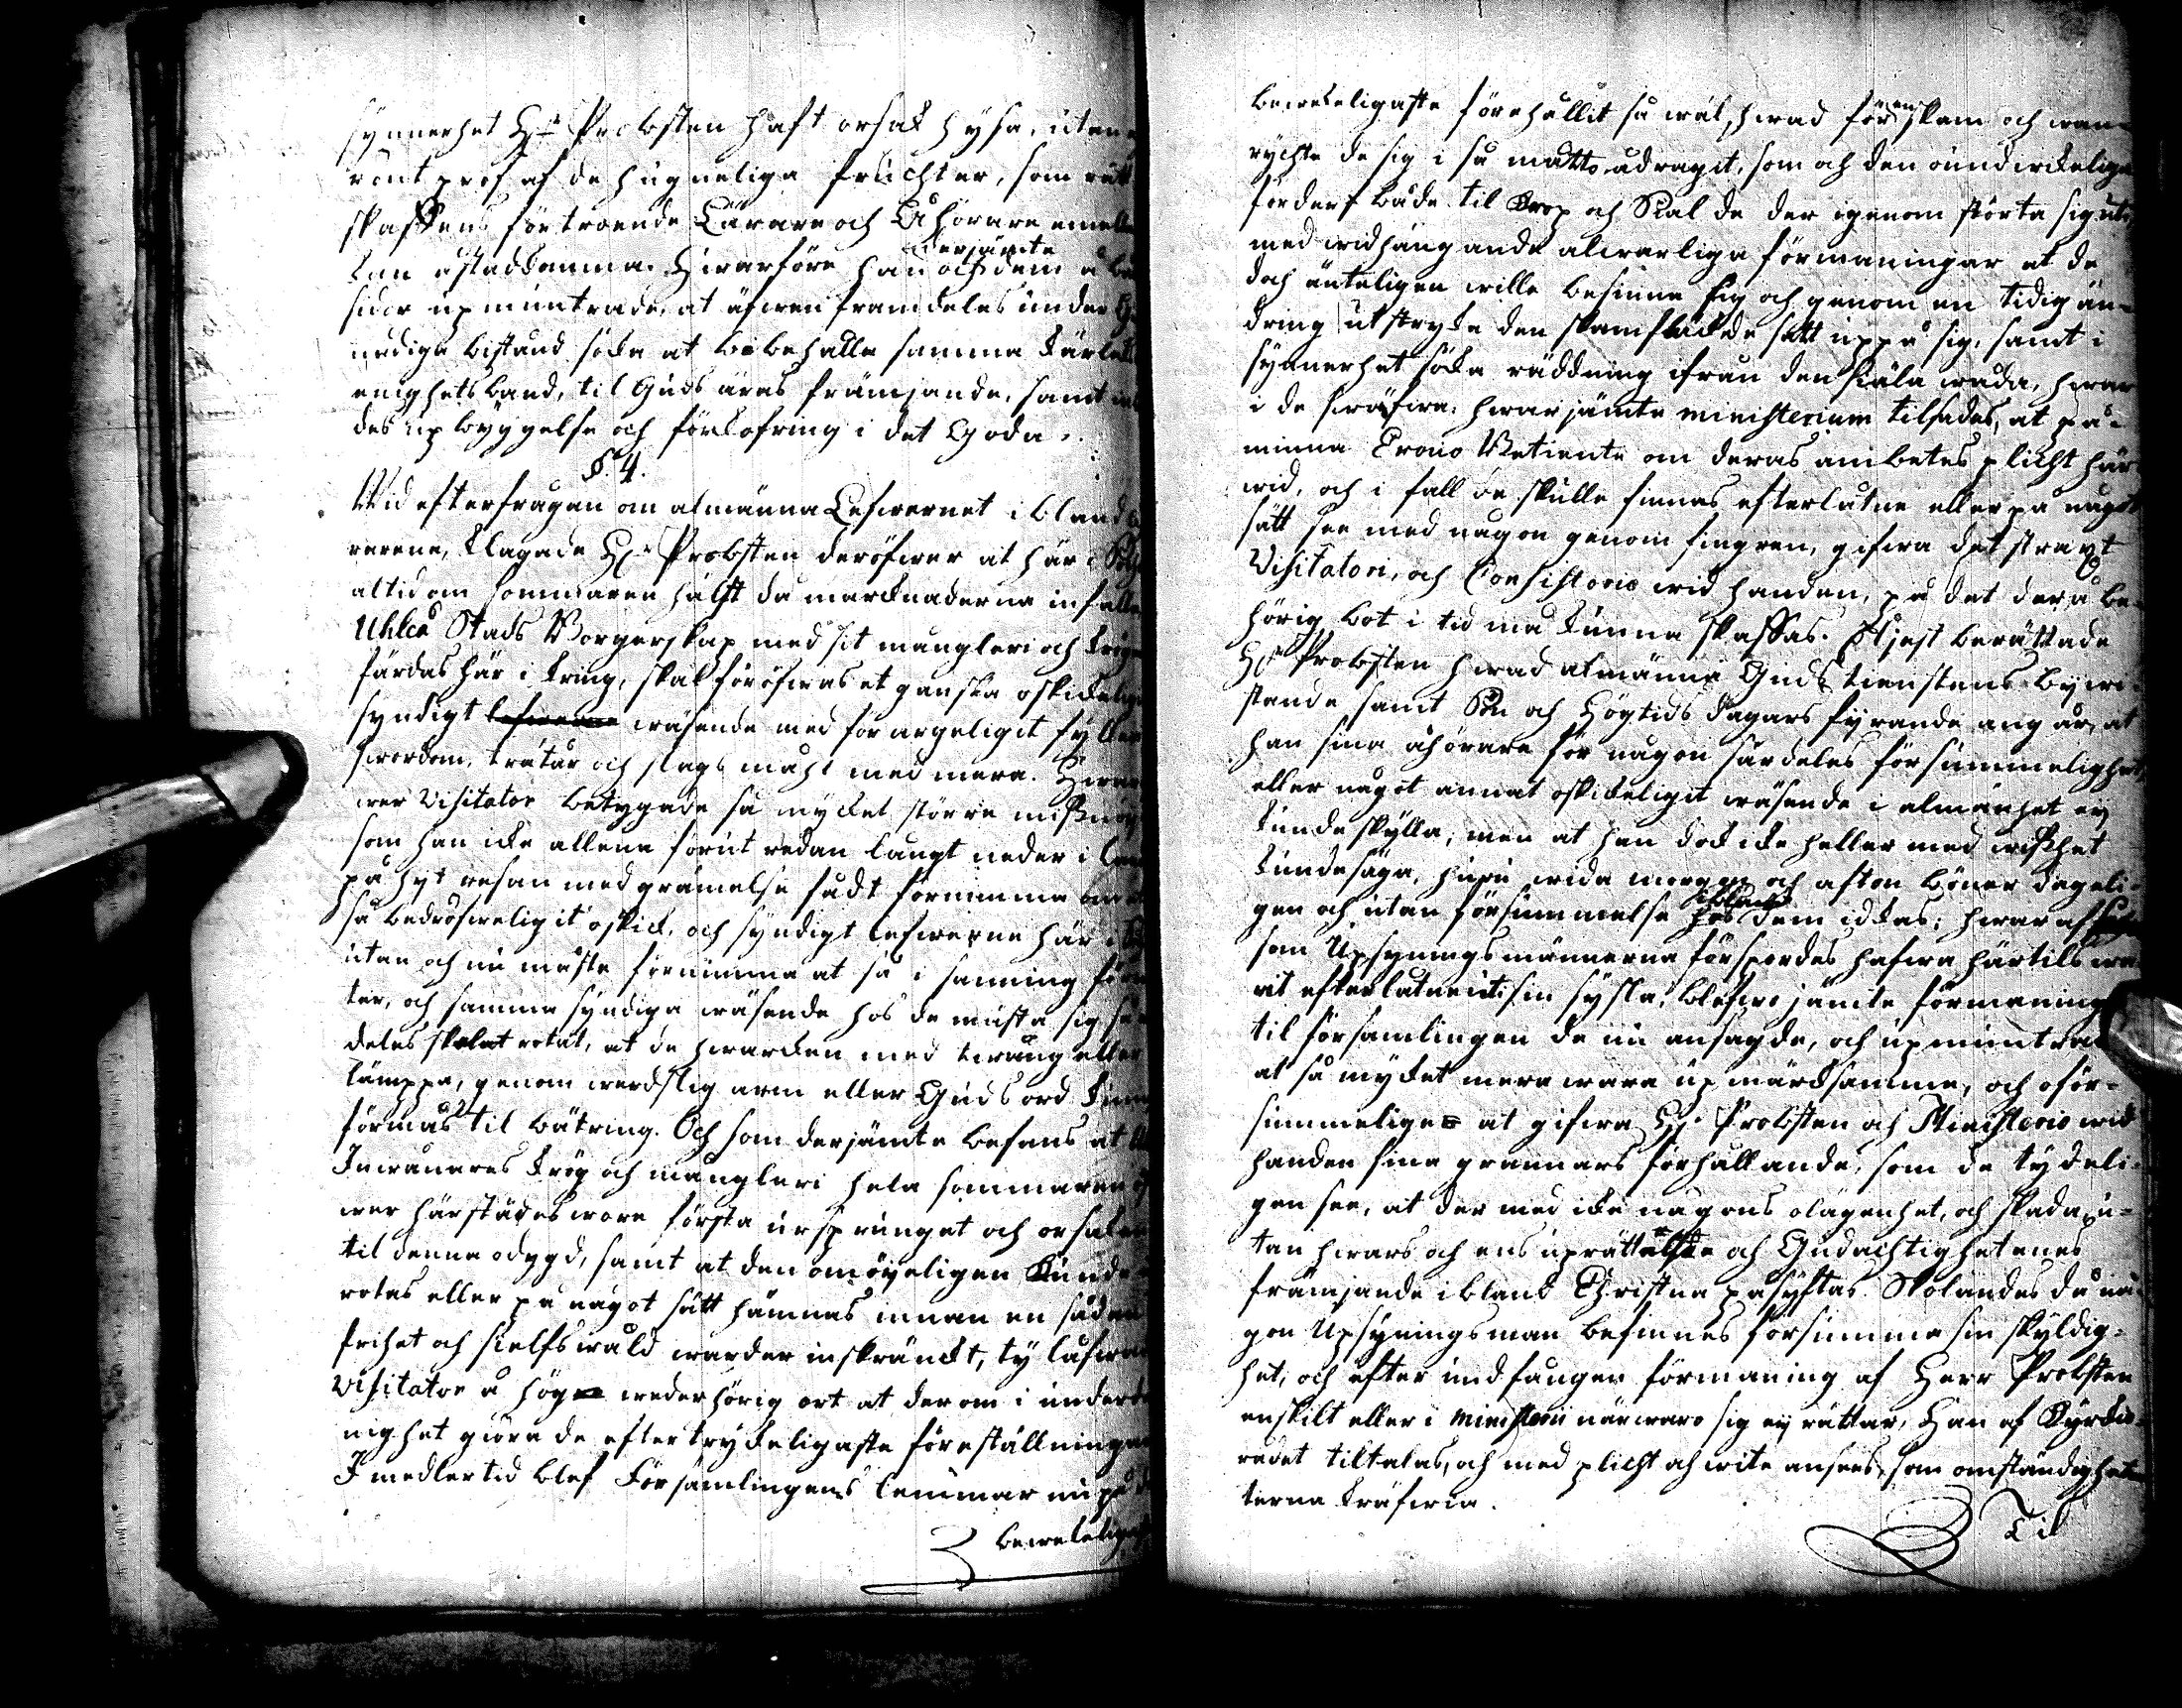 synnerhet H:r Probsten haft orsak hysa, utan
rönt prof af de hugneliga fruchter, som rätt
skaffens förtroende Lärare och Åhörare emellan
kan åstadkomma. Hwarföre han ock derjämte dem å bå
sidor upmuntrade, at äfwen framdeles under
nådiga bistånd söka at bibehålla samma kärleks
enighets band, til Guds äras främjande, samt
des upbyggelse och förkofring i det Goda.
§. 4.
Wid efterfrågan om almänna Lefwernet ibland
rarena, klagade H:r Probsten deröfwer at här i
altid om sommaren hälst då marcknaderna infalla
Uhleå Stads Borgerskap med sit mångleri och krög
färdas här i kring, skal föröfwas et ganska oskickeligt
syndigt lefwerne wäsende med förargeligit fylleri
hordom, trätor och slagsmåhl med mera. Hwar
wer Visitator betygade så mycket större missnöje
som han icke allena förut redan långt neder i
på hyt resan med grämelse fådt förnimma om
så bedröfweligit oskick, och syndigt lefwerne här
utan och nu måste förnimma at så i sanning för
ter, och samma syndiga wäsende hos de mästa sig så
deles skola rotat, at de hwarcken med twång eller
lämppa, genom werdslig arm eller Guds ord kunna
förmås til bätring. Och som derjämte befans at
Inwånares krög och mångleri hela sommaren ö
wer härstädes wore första ursprunget och orsaken
til denna odygd, samt at den omöyeligen kunde
rotas eller på något sätt hämnas innan en sådan
frihet och sielfswåld warder inskränckt, ty lofwade
Visitator å hög wederhörig ort at derom i underdå
nighet giöra de eftertryckeligaste föreställningar
Imedlertid blef Församlingens lemmar nu på
beweckeligaste
beweckeligaste förehållit så wäl, hwad för en skam och wan-
rychte de sig i så måtto ådragit, som och den oundwickeliga
förderf både til Krop och Siäl de der igenom störta sig uti
med widhängande alwarliga förmaningar at de
doch änteligen wille besinna sig och genom en tidig än-
dring utstryka den skamfläck de satt uppå sig, samt i
synnerhet söka räddning ifrån den siäla wåda, hwar
i de swäfwa. hwarjämte ministerium tilsades, at på-
minna Crono Betiente om deras ämbetes plicht här
wid, och i fall de skulle finnas efterlåtne eller på något
sätt see med någon genom fingren, gifwa det straxt
Visitatori, och Consistorio wid handen, på det derå be-
hörig bot i tid må kunna skaffas. Hjest berättade
H:r Probsten hwad almänna Gudstienstens bywi-
stande samt Sön och Högtids dagars fyrande angår, at
han sina åhörare för någon särdeles försummelighet
eller något annat oskickeligit wäsende i almänhet ey
kunde skylla, men at han dock icke heller med wisshet
kunde säga, huru wida morgon och afton böner dageli-
gen och utan försummelse hos ibland dem idkas: hwaraf
som Upsyningsmännerna förspordes hafwa härtils wa-
rit efterlåtne uti sin sysla, blefwo jämte förmaning
til församlingen de nu ansagde, och upmuntrade
at så mycket mera wara upmärcksamme, och oför-
summelige at gifwa H:r Probsten och Ministerio wid
handen sina grannars förhållande, som de tydeli-
gen see, at der med icke någons olägenhet, och skada, u-
tan hwars och ens uprättelse och Gudachtighetenes
främjande ibland Christna påsyftas. Skolandes då nå-
gon Upsyningsman befinnes försumma sin skyldig-
het, och efter undfången förmaning af Herr Probsten
enskilt eller i ministerii närwaro sig ey rättar, Han af Kyrckio
rådet tiltalas, och med plicht och wite ansees, som omständighet
terna kräfwia.
Til